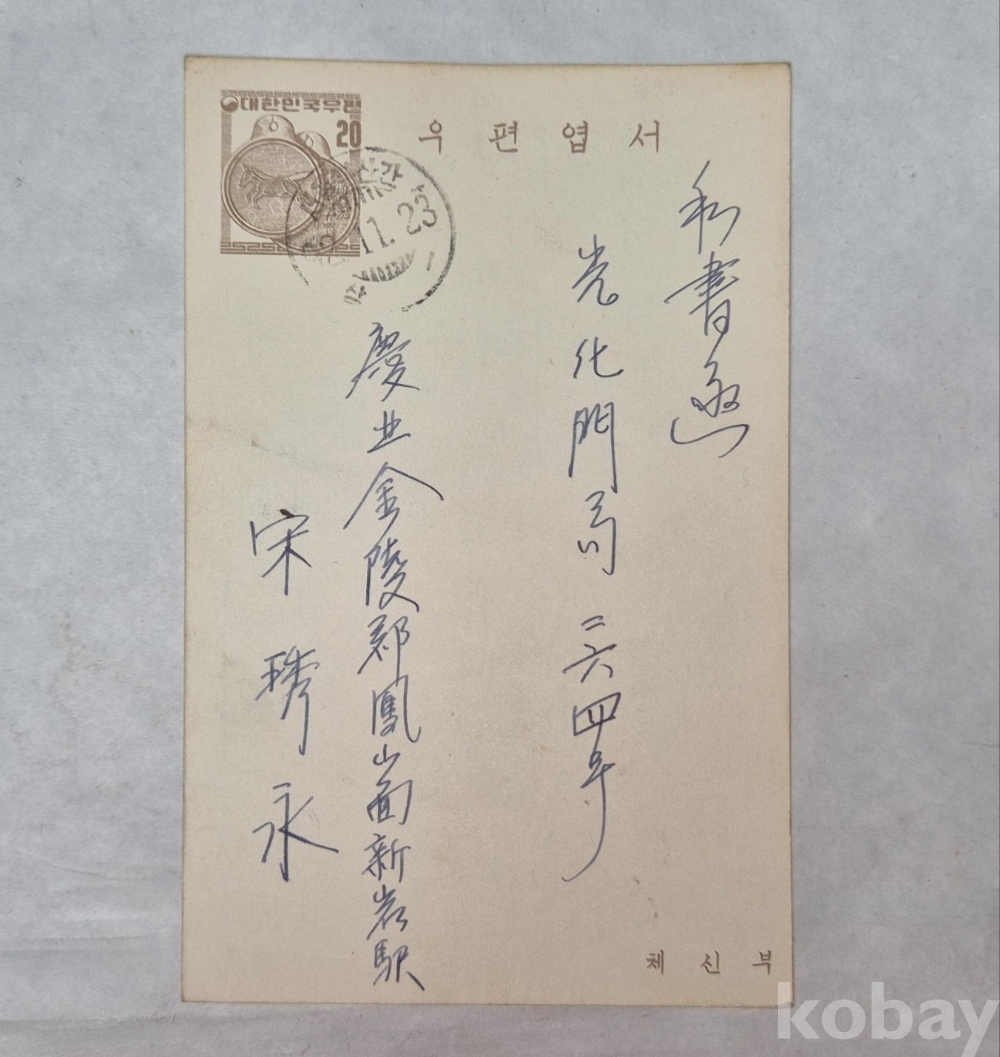 대한민국우편
20
우편엽서
11.23
私書函
光化門局 二六四号
慶北金陵郡鳳山面新岩駅
宋琇永
체신부
kobay